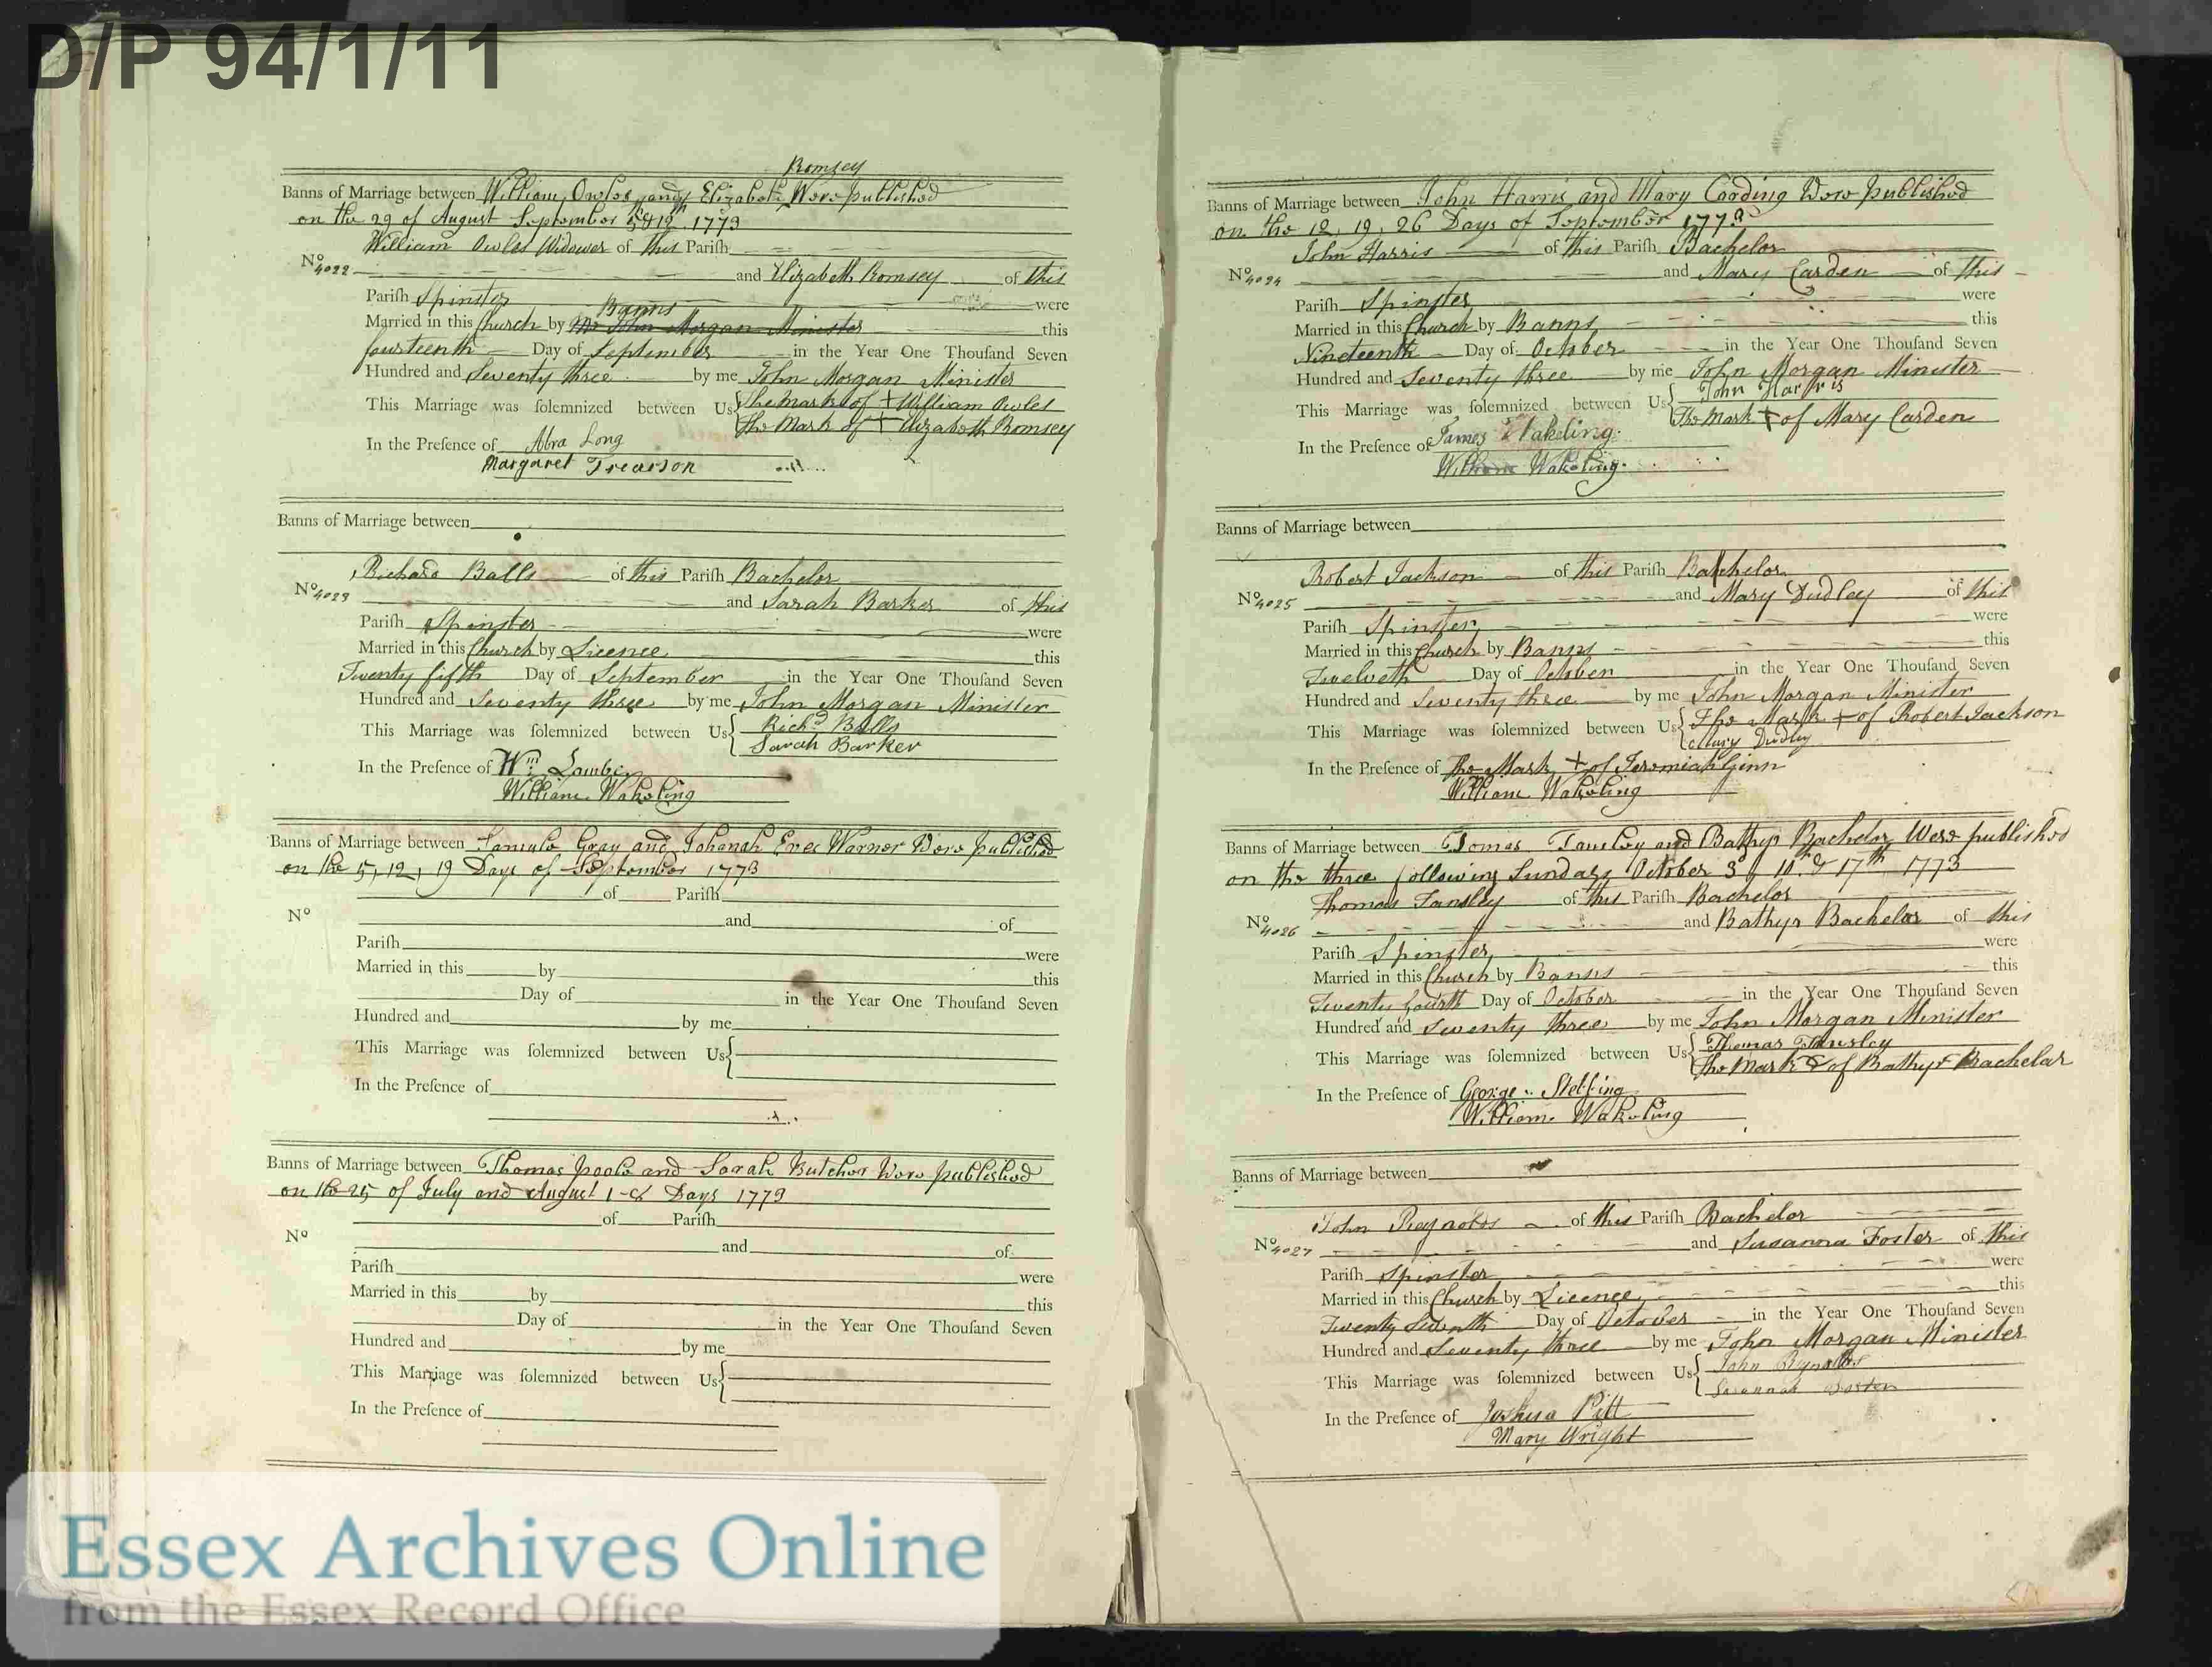 D/P 94/1/11
Romsey
Banns of Marriage between William Owles and Elizabeth Were published
on the 29 of August September 5 & 12 1773
William Owles Widower of this Pariſh
No 4022 and Elizabeth Romsey of this
Pariſh Spinster were
Banns
Married in this Church by Mr John Morgan Minister this
fourteenth Day of September in the Year One Thouſand Seven
Hundred and Seventy three by me John Morgan Minister
This Marriage was ſolemnized between Us The Mark of + William Owles
The Mark of + Elizabeth Romsey
In the Preſence of Abra Long
Margaret Trearson
Banns of Marriage between
Richard Balls of this Pariſh Bachelor
No 4023 and Sarah Barker of this
Pariſh Spinster were
Married in this Church by Licence this
Twenty fifth Day of September in the Year One Thouſand Seven
Hundred and Seventy three by me John Morgan Minister
This Marriage was ſolemnized between Us Richd Balls
Sarah Barker
In the Preſence of Wm
William Wakeling
Banns of Marriage between Gray and Johanah Warner Were Published
on the 5, 12, 19 Days of September 1773
of Pariſh
No and of
Pariſh were
Married in this by this
Day of in the Year One Thouſand Seven
Hundred and by me
This Marriage was ſolemnized between Us
In the Preſence of
Banns of Marriage between Thomas Poole and Sarah Butcher Were published
on the 25 of July and August 1-8 Days 1773
of Pariſh
No and of
Pariſh were
Married in this by this
Day of in the Year One Thouſand Seven
Hundred and by me
This Marriage was ſolemnized between Us
In the Preſence of
Banns of Marriage between John Harris and Mary Carding Were Published
on the 12, 19, 26 Days of September 1773
John Harris of this Pariſh Bachelor
No 4024 and Mary Carden of this
Pariſh Spinster were
Married in this Church by Banns this
Nineteenth Day of October in the Year One Thouſand Seven
Hundred and Seventy three by me John Morgan Minister
This Marriage was ſolemnized between Us John Harris
The Mark + of Mary Carden
In the Preſence of James Wakeling
William Wakeling
Banns of Marriage between
Robert Jackson of this Pariſh Batchelor
No 4025 and Mary Dudley of this
Pariſh Spinster were
Married in this Church by Banns this
Twelveth Day of October in the Year One Thouſand Seven
Hundred and Seventy three by me John Morgan Minister
This Marriage was ſolemnized between Us The Mark + of Robert Jackson
Mary Dudley
In the Preſence of The Mark + of Jeremiah Ginn
William Wakeling
Banns of Marriage between Tomas Tansley and Bathyr Bachelor Were published
on the three following Sundays October 3d 10th & 17th 1773
Thomas Tansley of this Pariſh Bachelor
No 4026 and Bathyr Bachelar of this
Pariſh Spinster were
Married in this Church by Banns this
Twenty fourth Day of October in the Year One Thouſand Seven
Hundred and Seventy three by me John Morgan Minister
This Marriage was ſolemnized between Us Thomas Tansley
The Mark + of Bathyr Bachelar
In the Preſence of George Stebbing
William Wakeling
Banns of Marriage between
John Reynolds of this Pariſh Bachelor
No 4027 and Susanna Foster of this
Pariſh Spinster were
Married in this Church by Licence this
Twenty Seventh Day of October in the Year One Thouſand Seven
Hundred and Seventy three by me John Morgan Minister
This Marriage was ſolemnized between Us John Reynolds
Susannah Foster
In the Preſence of Joshua Pitt
Mary Wright
Essex Archives Online
from the Essex Record Office